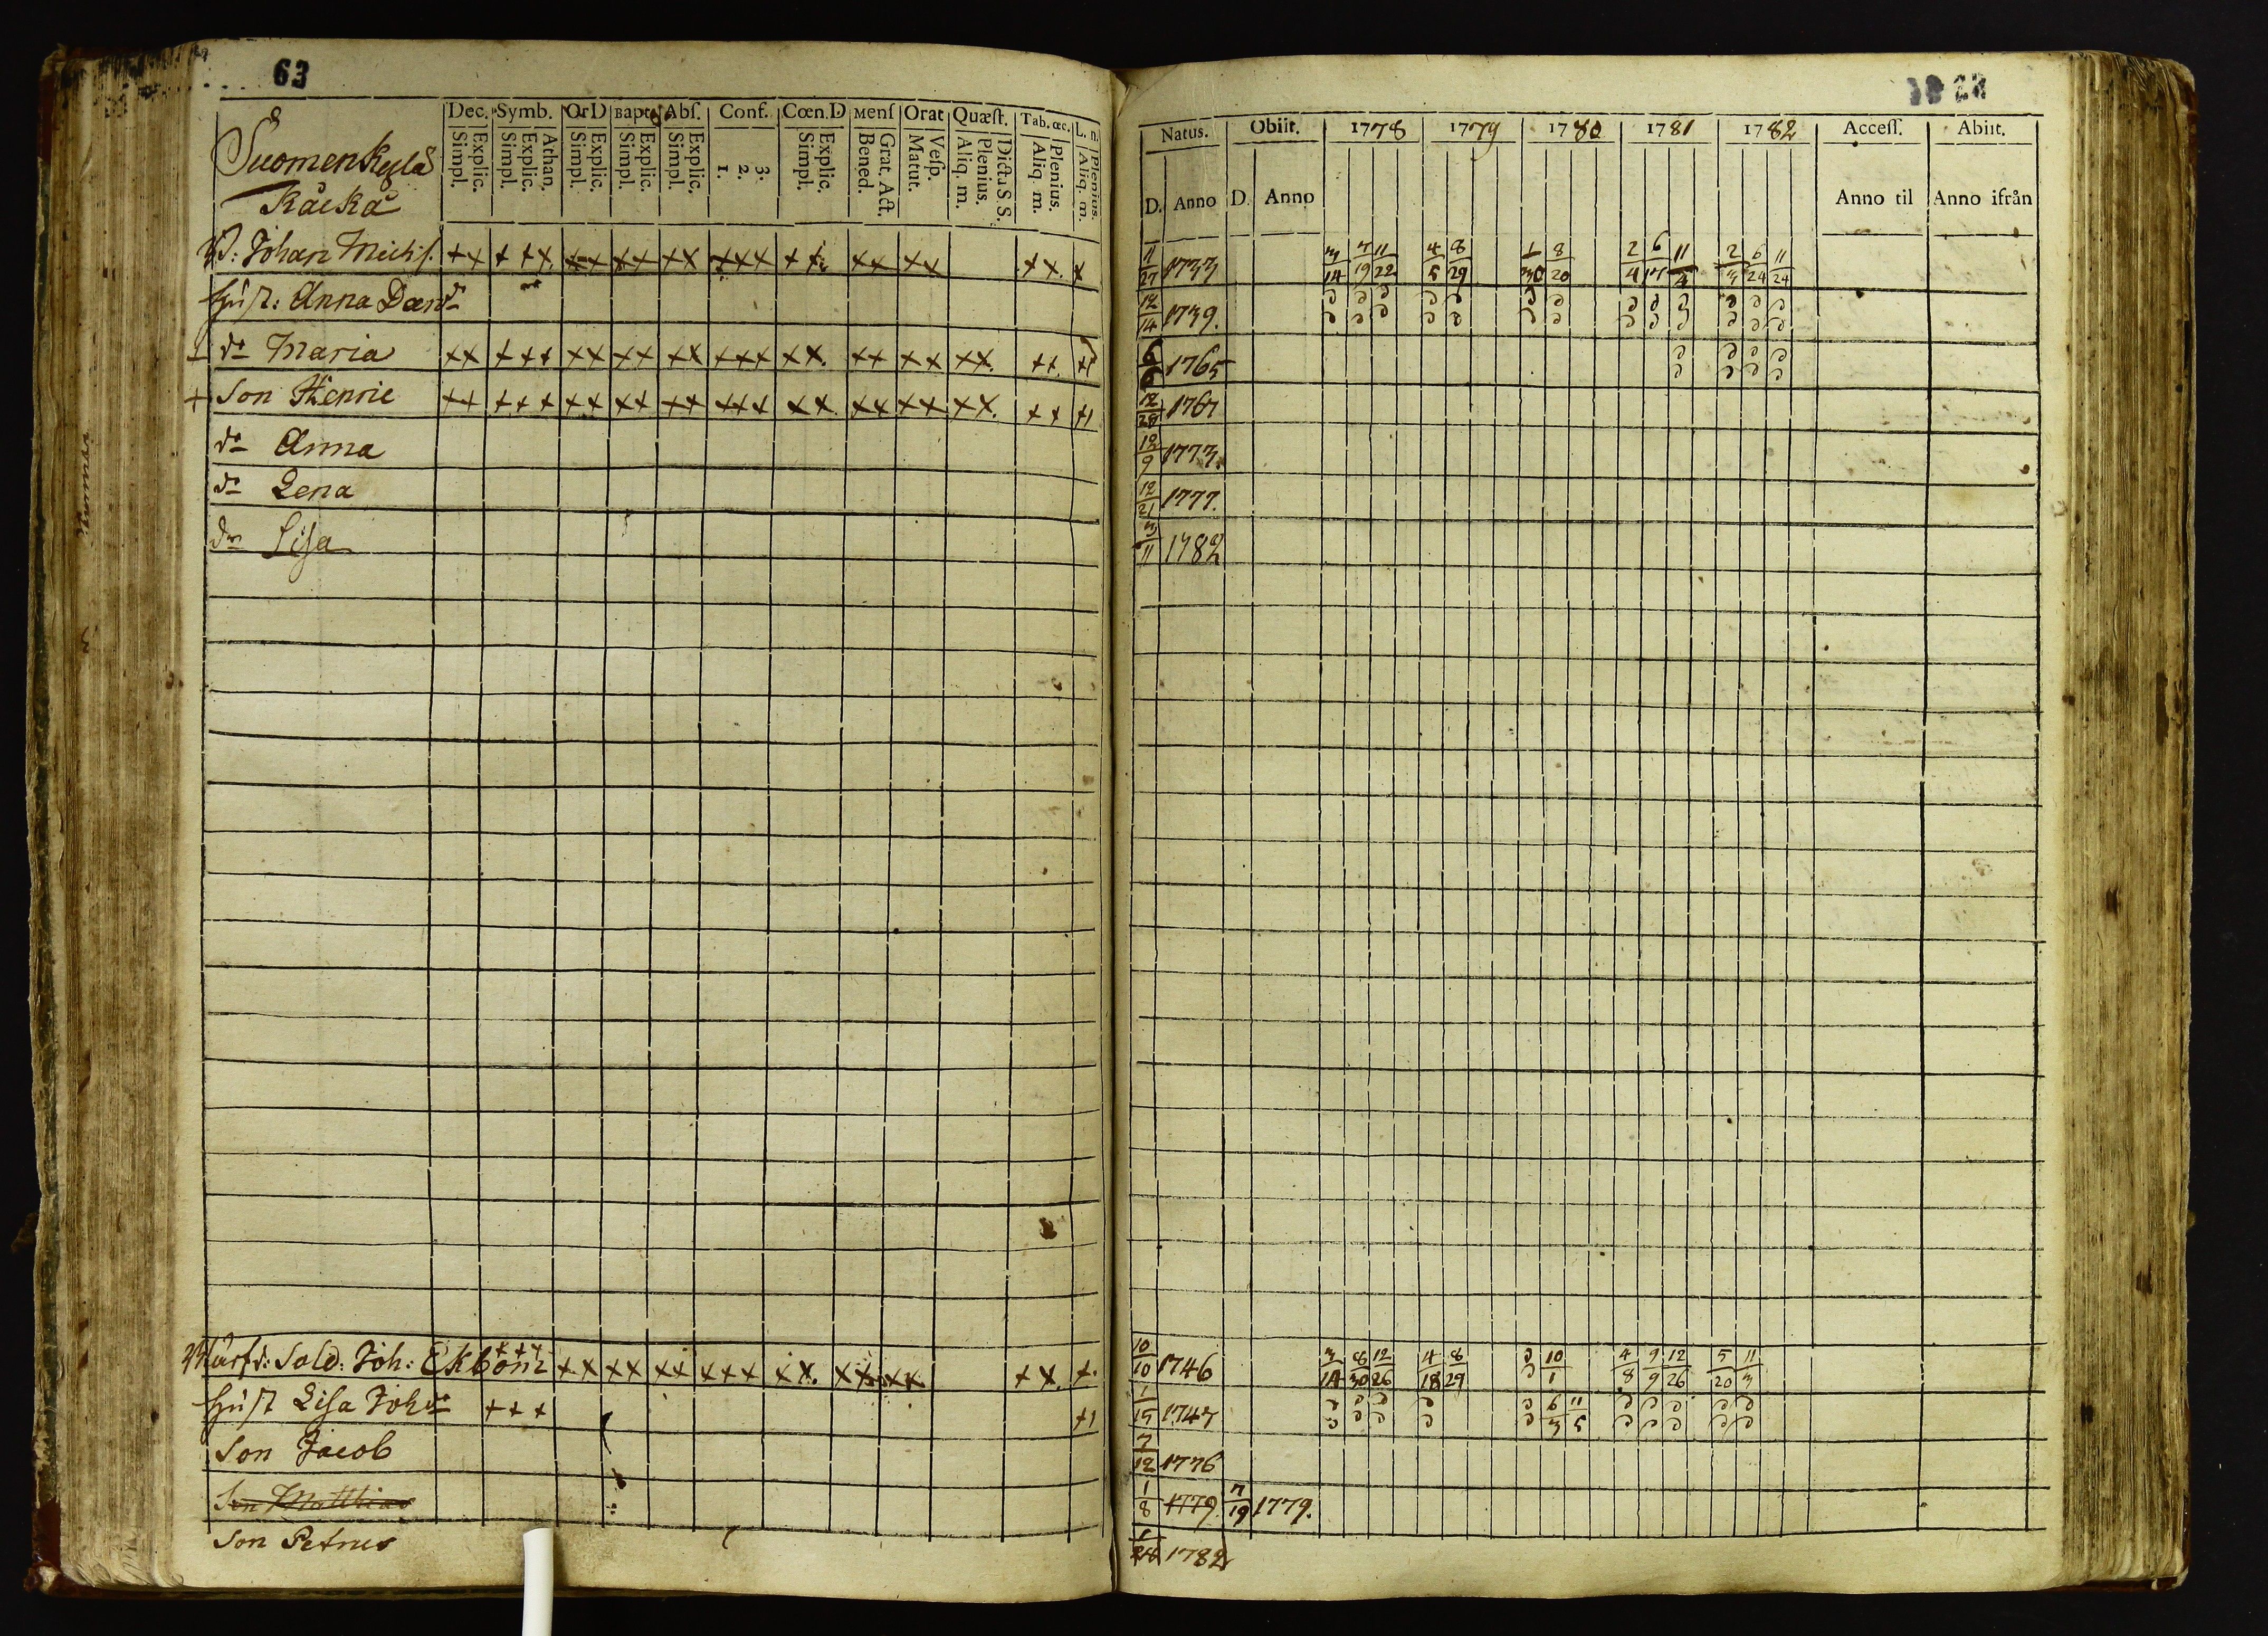 63
Dec. Symb. OrD Bapt. Abſ. Conf. Cœn.D Menſ Orat Quæſt. Tab.œc. L. n.
Explic. Simpl. Athan. Explic. Simpl. Explic. Simpl. Explic. Simpl. Explic. Simpl. 3. 2. 1. Explic. Simpl. Grat. Act. Bened. Veſp. Matut. Dicta S S. Plenius. Aliq. m. Plenius. Aliq. m. Plenius. Aliq. m.
Suomenkylä
Kåckå
Johan Michſ.
Huſt: Anna Davdr
dr Maria
Son Henric
dr Anna
dr Lena
dr Liſa
Sold: Joh: Ekbom
Huſt Liſa Johdr
Son Jacob
Son Matthias
Son Petrus
Natus. Obiit. 1778 1779 1780 1781 1782 Acceſſ. Abiit.
D. Anno D. Anno Anno til Anno ifrån
11/27 1733 3/14 7/19 11/22 4/5 8/29 1/30 8/20 2/4 6/17 11/4 2/3 6/24 11/24
12/14 1739.
6/6 1765
12/28 1767
12/9 1773.
12/21 1777.
3/11 1782
10/10 1746 3/14 8/30 12/26 4/18 8/29 10/1 4/8 9/9 12/26 5/20 11/3
1/15 1747 6/3 11/5
7/12 1776
1/8 1779 7/19 1779.
1782